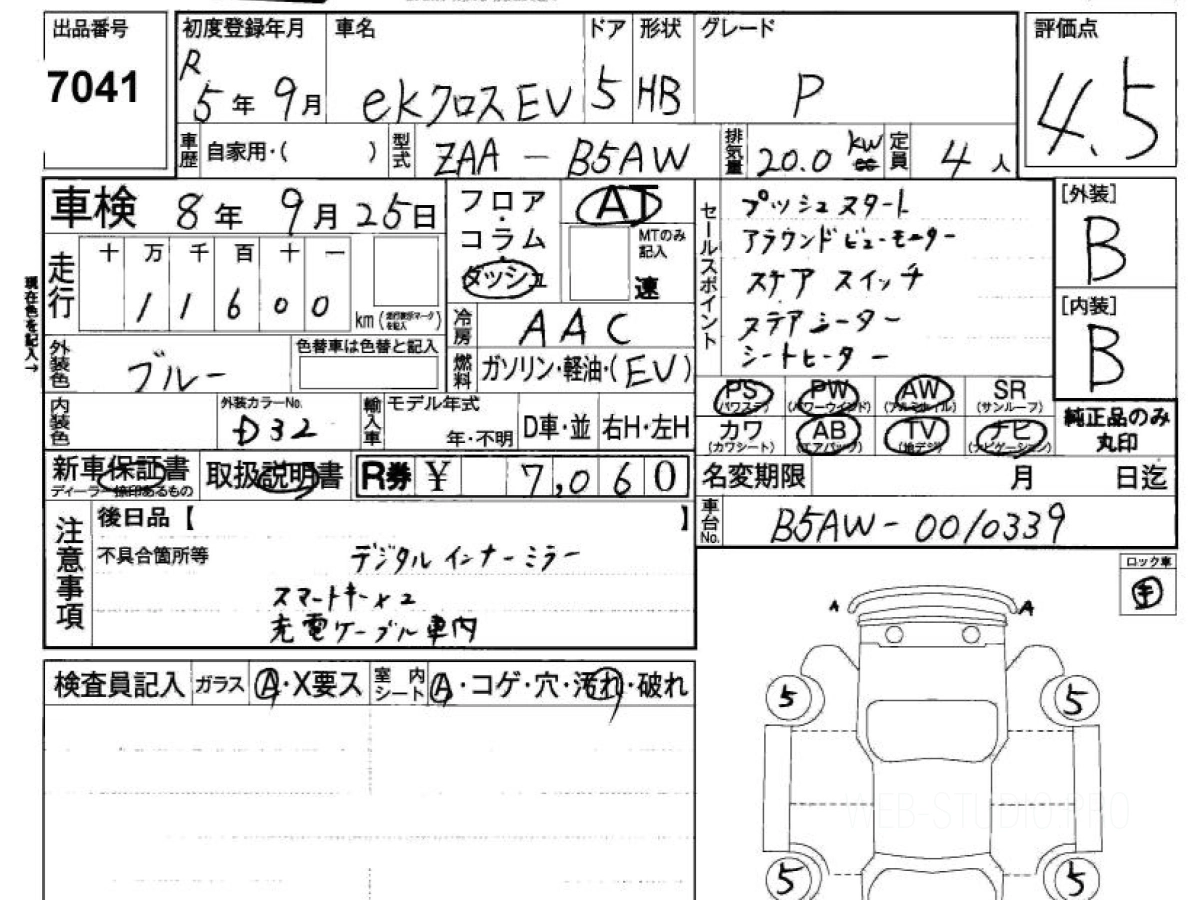 出品番号
7041
初度登録年月 車名 ドア 形状 グレード
R5年9月 ekクロスEV 5 HB P
評価点
4.5
車歴 自家用・( ) 型式 ZAA-B5AW 排気量 20.0 kw 定員 4人
車検 8年9月25日
フロア・コラム・ダッシュ
AT
MTのみ記入
速
セールスポイント
プッシュスタート
アラウンドビューモーター
ステアスイッチ
ステアシーター
シートヒーター
[外装]
B
[内装]
B
現在色を記入→
走行 十 万 千 百 十 一
11600 km
冷房 AAC
燃料 ガソリン・軽油・(EV)
外装色 ブルー
色替車は色替と記入
内装色
外装カラーNo.
D32
輸入車 モデル年式
年・不明 D車・並 右H・左H
PS (パワステ) PW (パワーウインド) AW (アルミホイル) SR (サンルーフ)
カワ (カワシート) AB (エアバッグ) TV (地デジ) ナビ (ナビゲーション)
純正品のみ丸印
新車保証書
取扱説明書 R券 ¥ 7,060
名変期限 月 日迄
車台No. B5AW-0010339
注意事項
後日品【 】
不具合箇所等
デジタルインナーミラー
スマートキー×2
充電ケーブル車内
ロック車
キ
検査員記入 ガラス A・X要ス 室内シート A・コゲ・穴・汚れ・破れ
A A
5 5
5 5
WEB-STUDIO.PRO